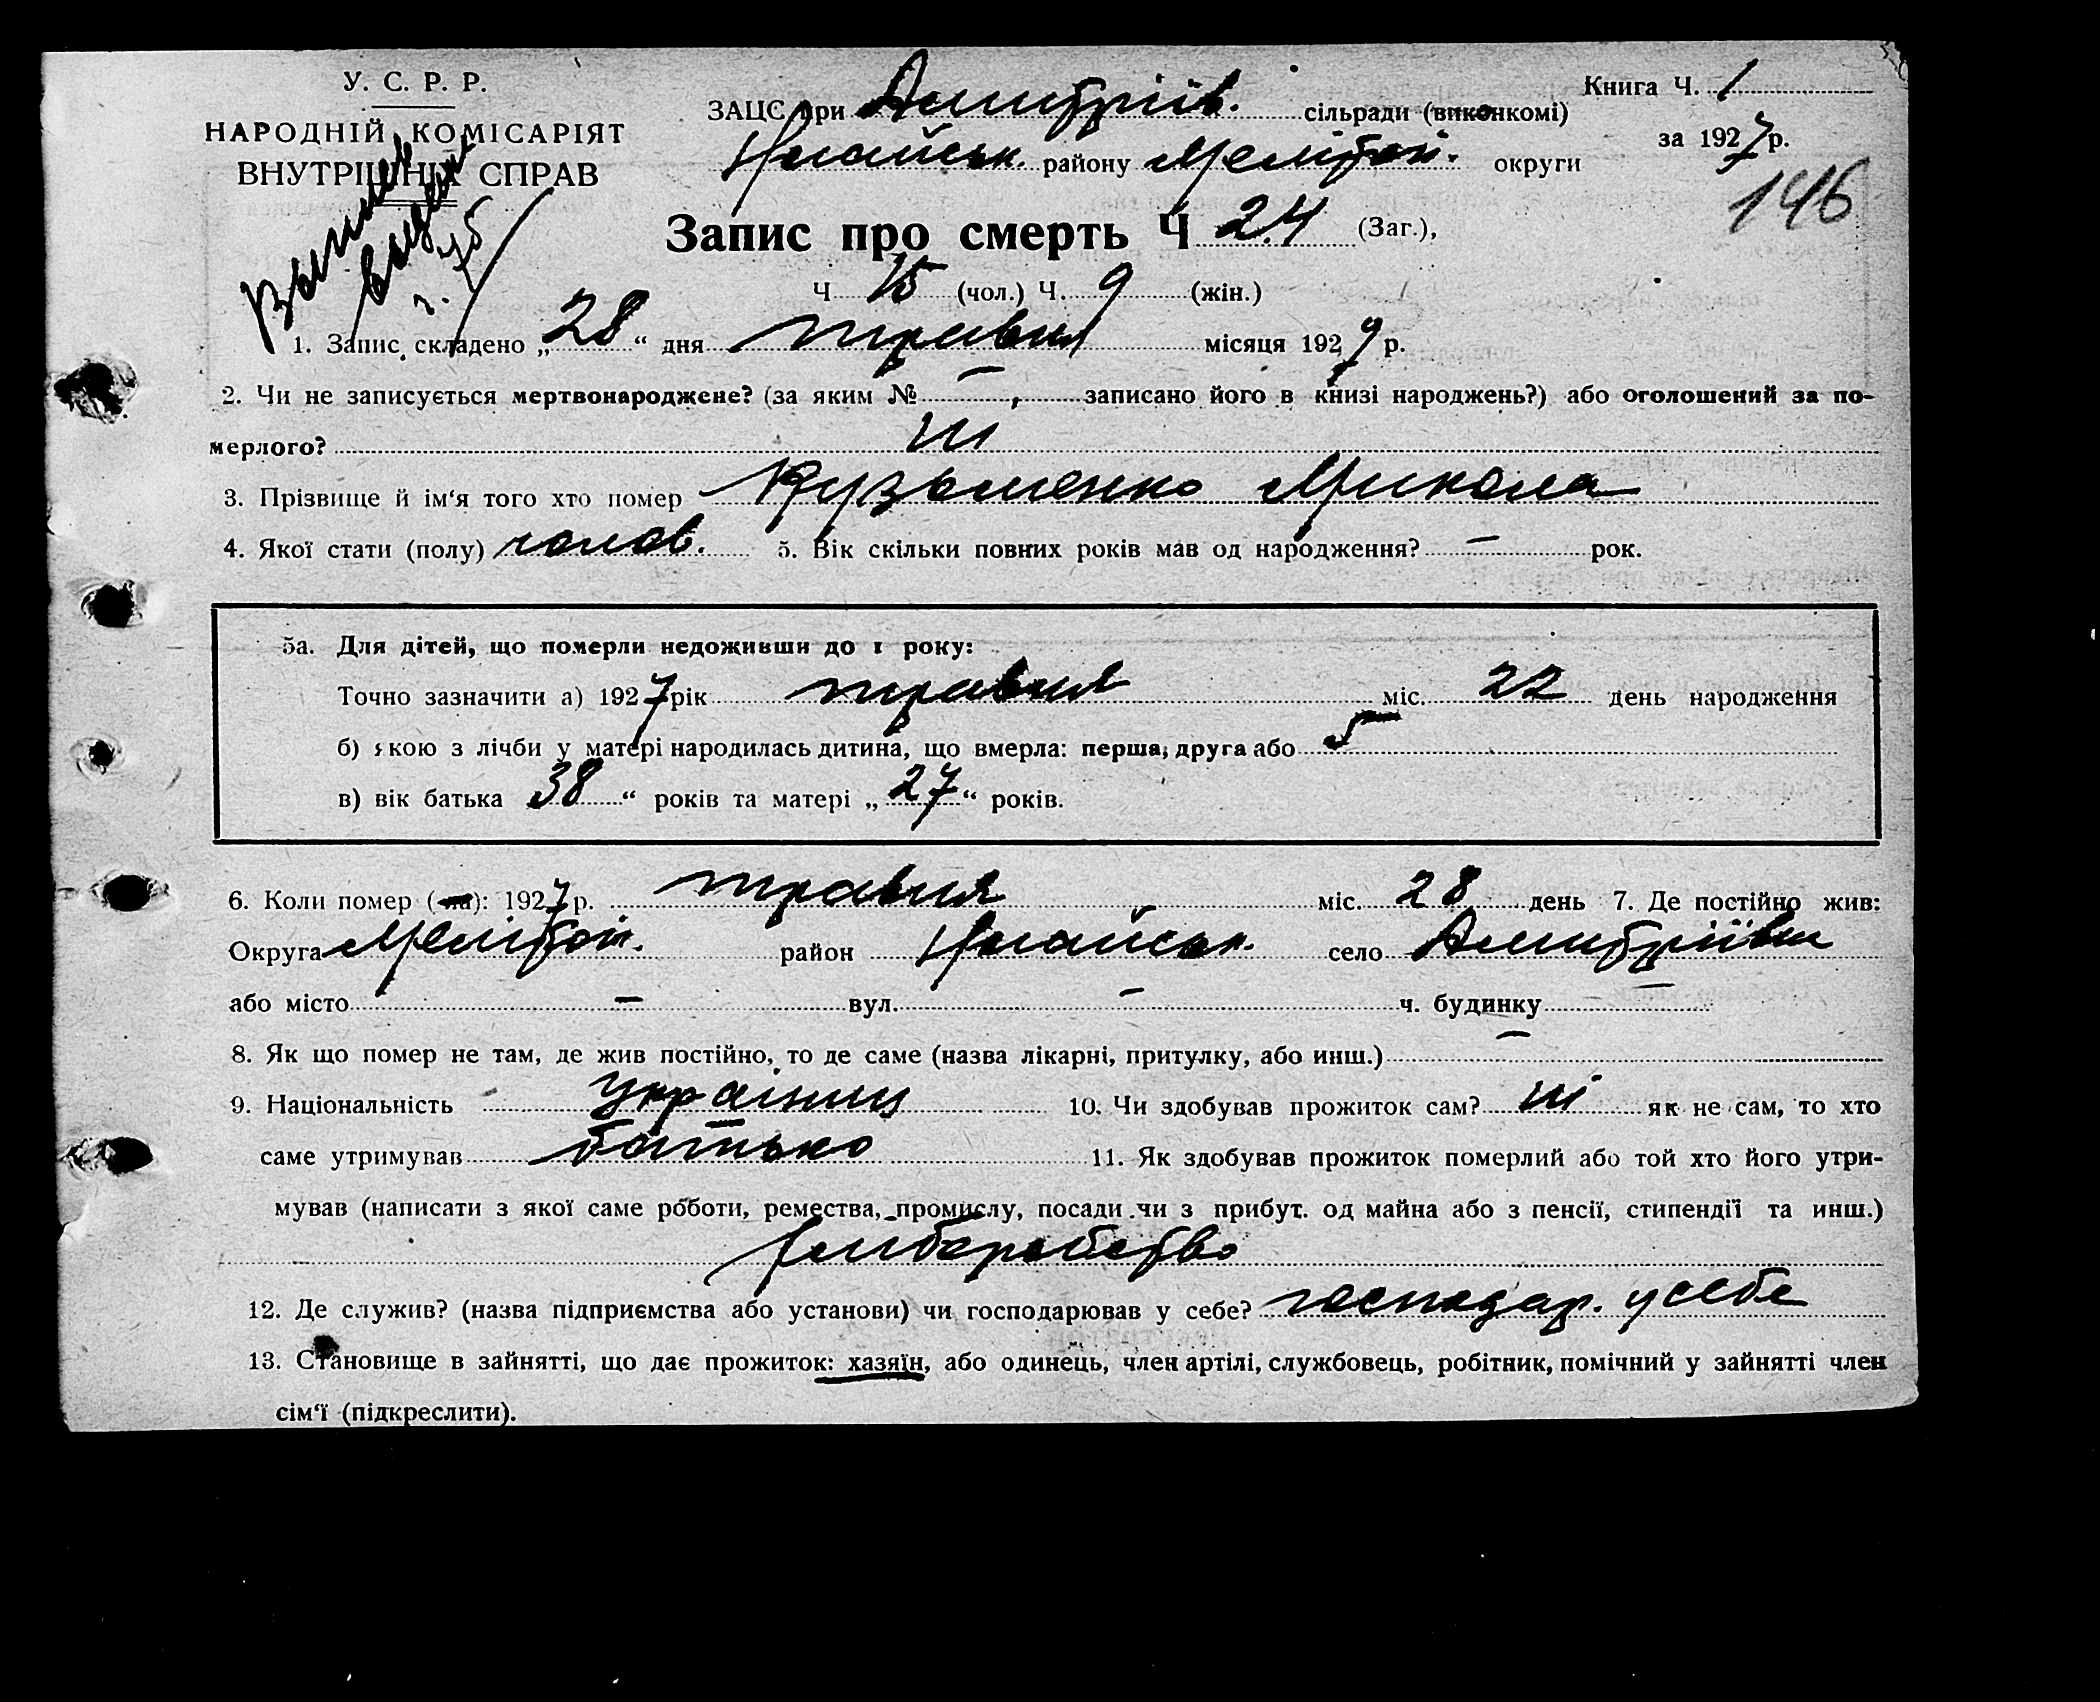 У. С. Р. Р.
НАРОДНІЙ КОМІСАРІЯТ
ВНУТРІШНІХ СПРАВ
ЗАЦС при Дмитріїв. сільради (виконкомі)
Ногайськ. району Мелітоп. округи
Книга Ч. 1
за 1927 р.
146
Запис про смерть Ч 24 (Заг.),
Ч 15 (чол.) Ч. 9 (жін.)
1. Запис складено „28“ дня травня місяця 1927 р.
2. Чи не записується мертвонароджене? (за яким № — , записано його в книзі народжень?) або оголошений за по-
мерлого? ні
3. Прізвище й ім‘я того хто помер Кузьменко Микола
4. Якої стати (полу) чолов. 5. Вік скільки повних років мав од народження? — рок.
5а. Для дітей, що померли недоживши до 1 року:
Точно зазначити а) 1927 рік травня міс. 22 день народження
б) якою з лічби у матері народилась дитина, що вмерла: перша, друга або 5
в) вік батька 38“ років та матері „27“ років.
6. Коли помер (ла): 1927 р. травня міс. 28 день 7. Де постійно жив:
Округа Мелітоп. район Ногайськ. село Дмитріївки
або місто — вул. — ч. будинку —
8. Як що помер не там, де жив постійно, то де саме (назва лікарні, притулку, або инш.) —
9. Національність українец 10. Чи здобував прожиток сам? ні як не сам, то хто
саме утримував батько 11. Як здобував прожиток померлий або той хто його утри-
мував (написати з якої саме роботи, ремества, промислу, посади чи з прибут. од майна або з пенсії, стипендії та инш.)
хлиборобство
12. Де служив? (назва підприємства або установи) чи господарював у себе? господар. у себе
13. Становище в зайнятті, що дає прожиток: хазяїн, або одинець, член артілі, службовець, робітник, помічний у зайнятті член
сім‘ї (підкреслити).